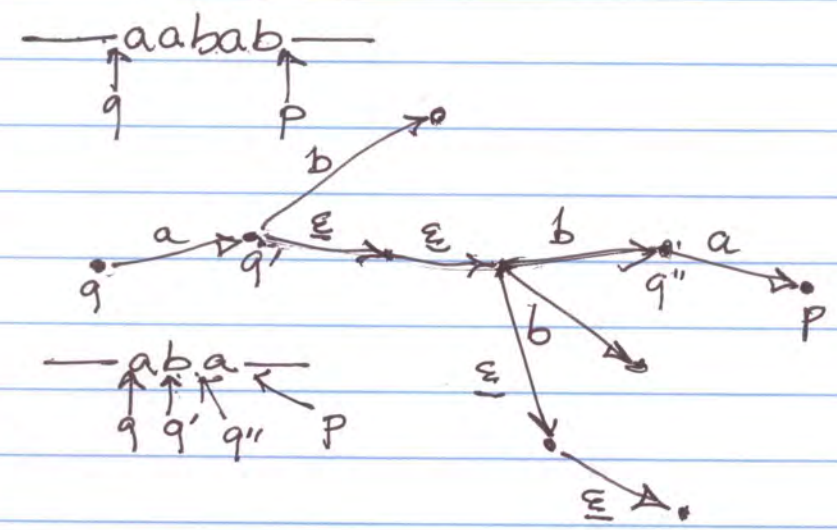 aabab
q p
b
a ε ε b a
q q' q" p
b
ε
aba
q q' q" p
ε